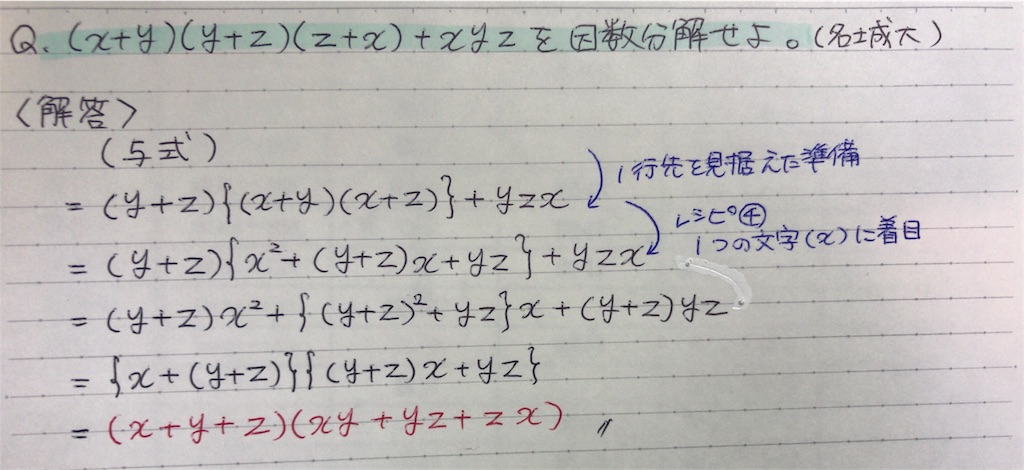 Q. (x+y)(y+z)(z+x)+xyzを因数分解せよ。(名城大)
〈解答〉
(与式)
= (y+z){(x+y)(x+z)}+yzx
1行先を見据えた準備
= (y+z){x²+(y+z)x+yz}+yzx
レシピ④
1つの文字(x)に着目
= (y+z)x²+{(y+z)²+yz}x+(y+z)yz
= {x+(y+z)}{(y+z)x+yz}
= (x+y+z)(xy+yz+zx)